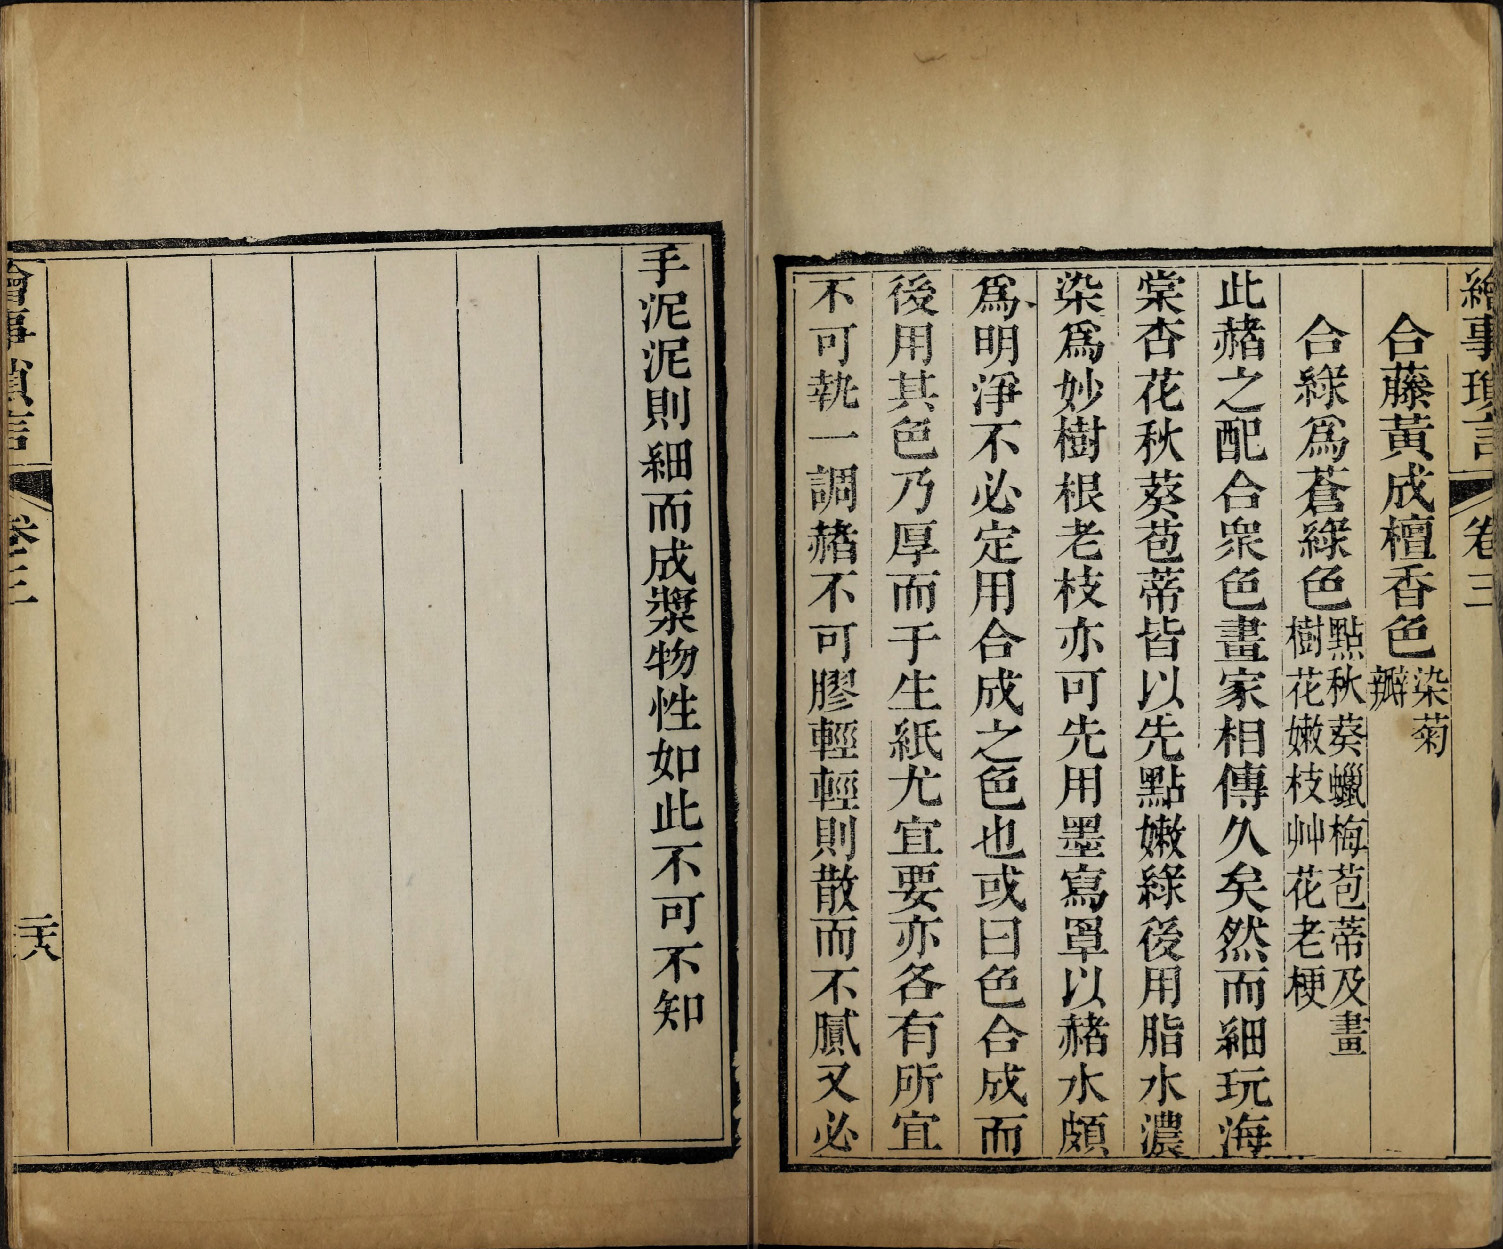 繪事瑣言 卷三
合藤黃成檀香色染菊瓣
合綠爲蒼綠色點秋葵蠟梅苞蒂及畫樹花嫩枝艸花老梗
此赭之配合衆色畫家相傳久矣然而細玩海
棠杏花秋葵苞蒂皆以先點嫩綠後用脂水濃
染爲妙樹根老枝亦可先用墨寫罩以赭水頗
爲明淨不必定用合成之色也或曰色合成而
後用其色乃厚而于生紙尤宜要亦各有所宜
不可執一調赭不可膠輕輕則散而不膩又必
手泥泥則細而成漿物性如此不可不知
繪事瑣言 卷三 二十八